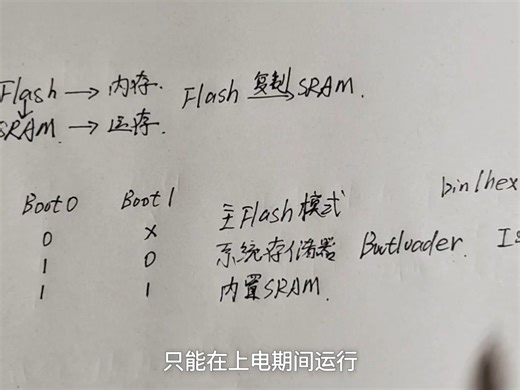 Flash → 内存. Flash 复制→ SRAM.
SRAM. → 运存.
Boot0 Boot1 主Flash模式 bin/hex
0 X
1 0 系统存储器 Bootloader. IS
1 1 内置SRAM.
只能在上电期间运行